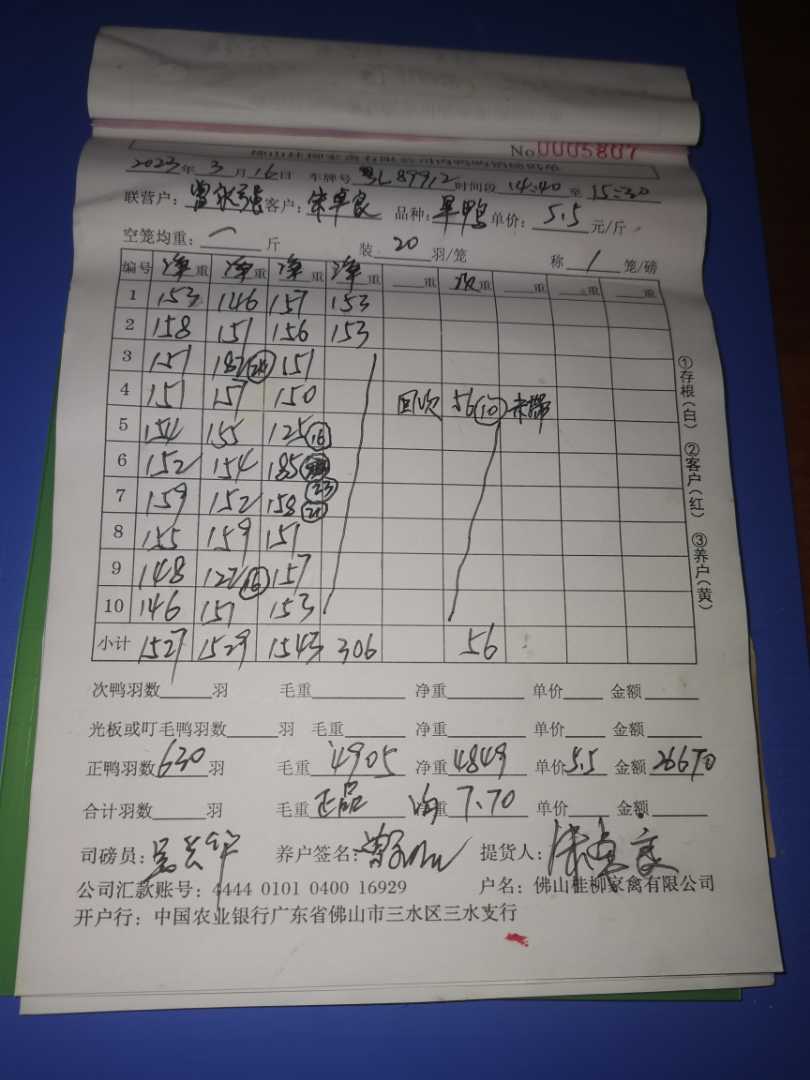 No 0005807
2023年 3 月 16日 车牌号 粤L89912 时间段 14:40 至 15:30
联营户: 曾 客户: 卓良 品种: 旱鸭 单价: 5.5 元/斤
空笼均重: 一 斤 装 20 羽/笼 称 1 笼/磅
编号 净重 净重 净重 净重 重 次重 重 重 重
1 153 146 157 153
2 158 151 156 153
3 151 187(24) 151
4 151 157 150 回次 56(10)
5 154 155 125(16)
6 152 154 185(23)
7 159 152 158(21)
8 155 159 151
9 148 127(16) 157
10 146 151 153
小计 1527 1529 1543 306 56
次鸭羽数 羽 毛重 净重 单价 金额
光板或叮毛鸭羽数 羽 毛重 净重 单价 金额
正鸭羽数 630 羽 毛重 4905 净重 4849 单价 5.5 金额 26670
合计羽数 羽 毛重 正品 净重 均 7.70 单价 金额
司磅员: 养户签名: 提货人:
公司汇款账号: 4444 0101 0400 16929 户名: 佛山桂柳家禽有限公司
开户行: 中国农业银行广东省佛山市三水区三水支行
①存根(白) ②客户(红) ③养户(黄)